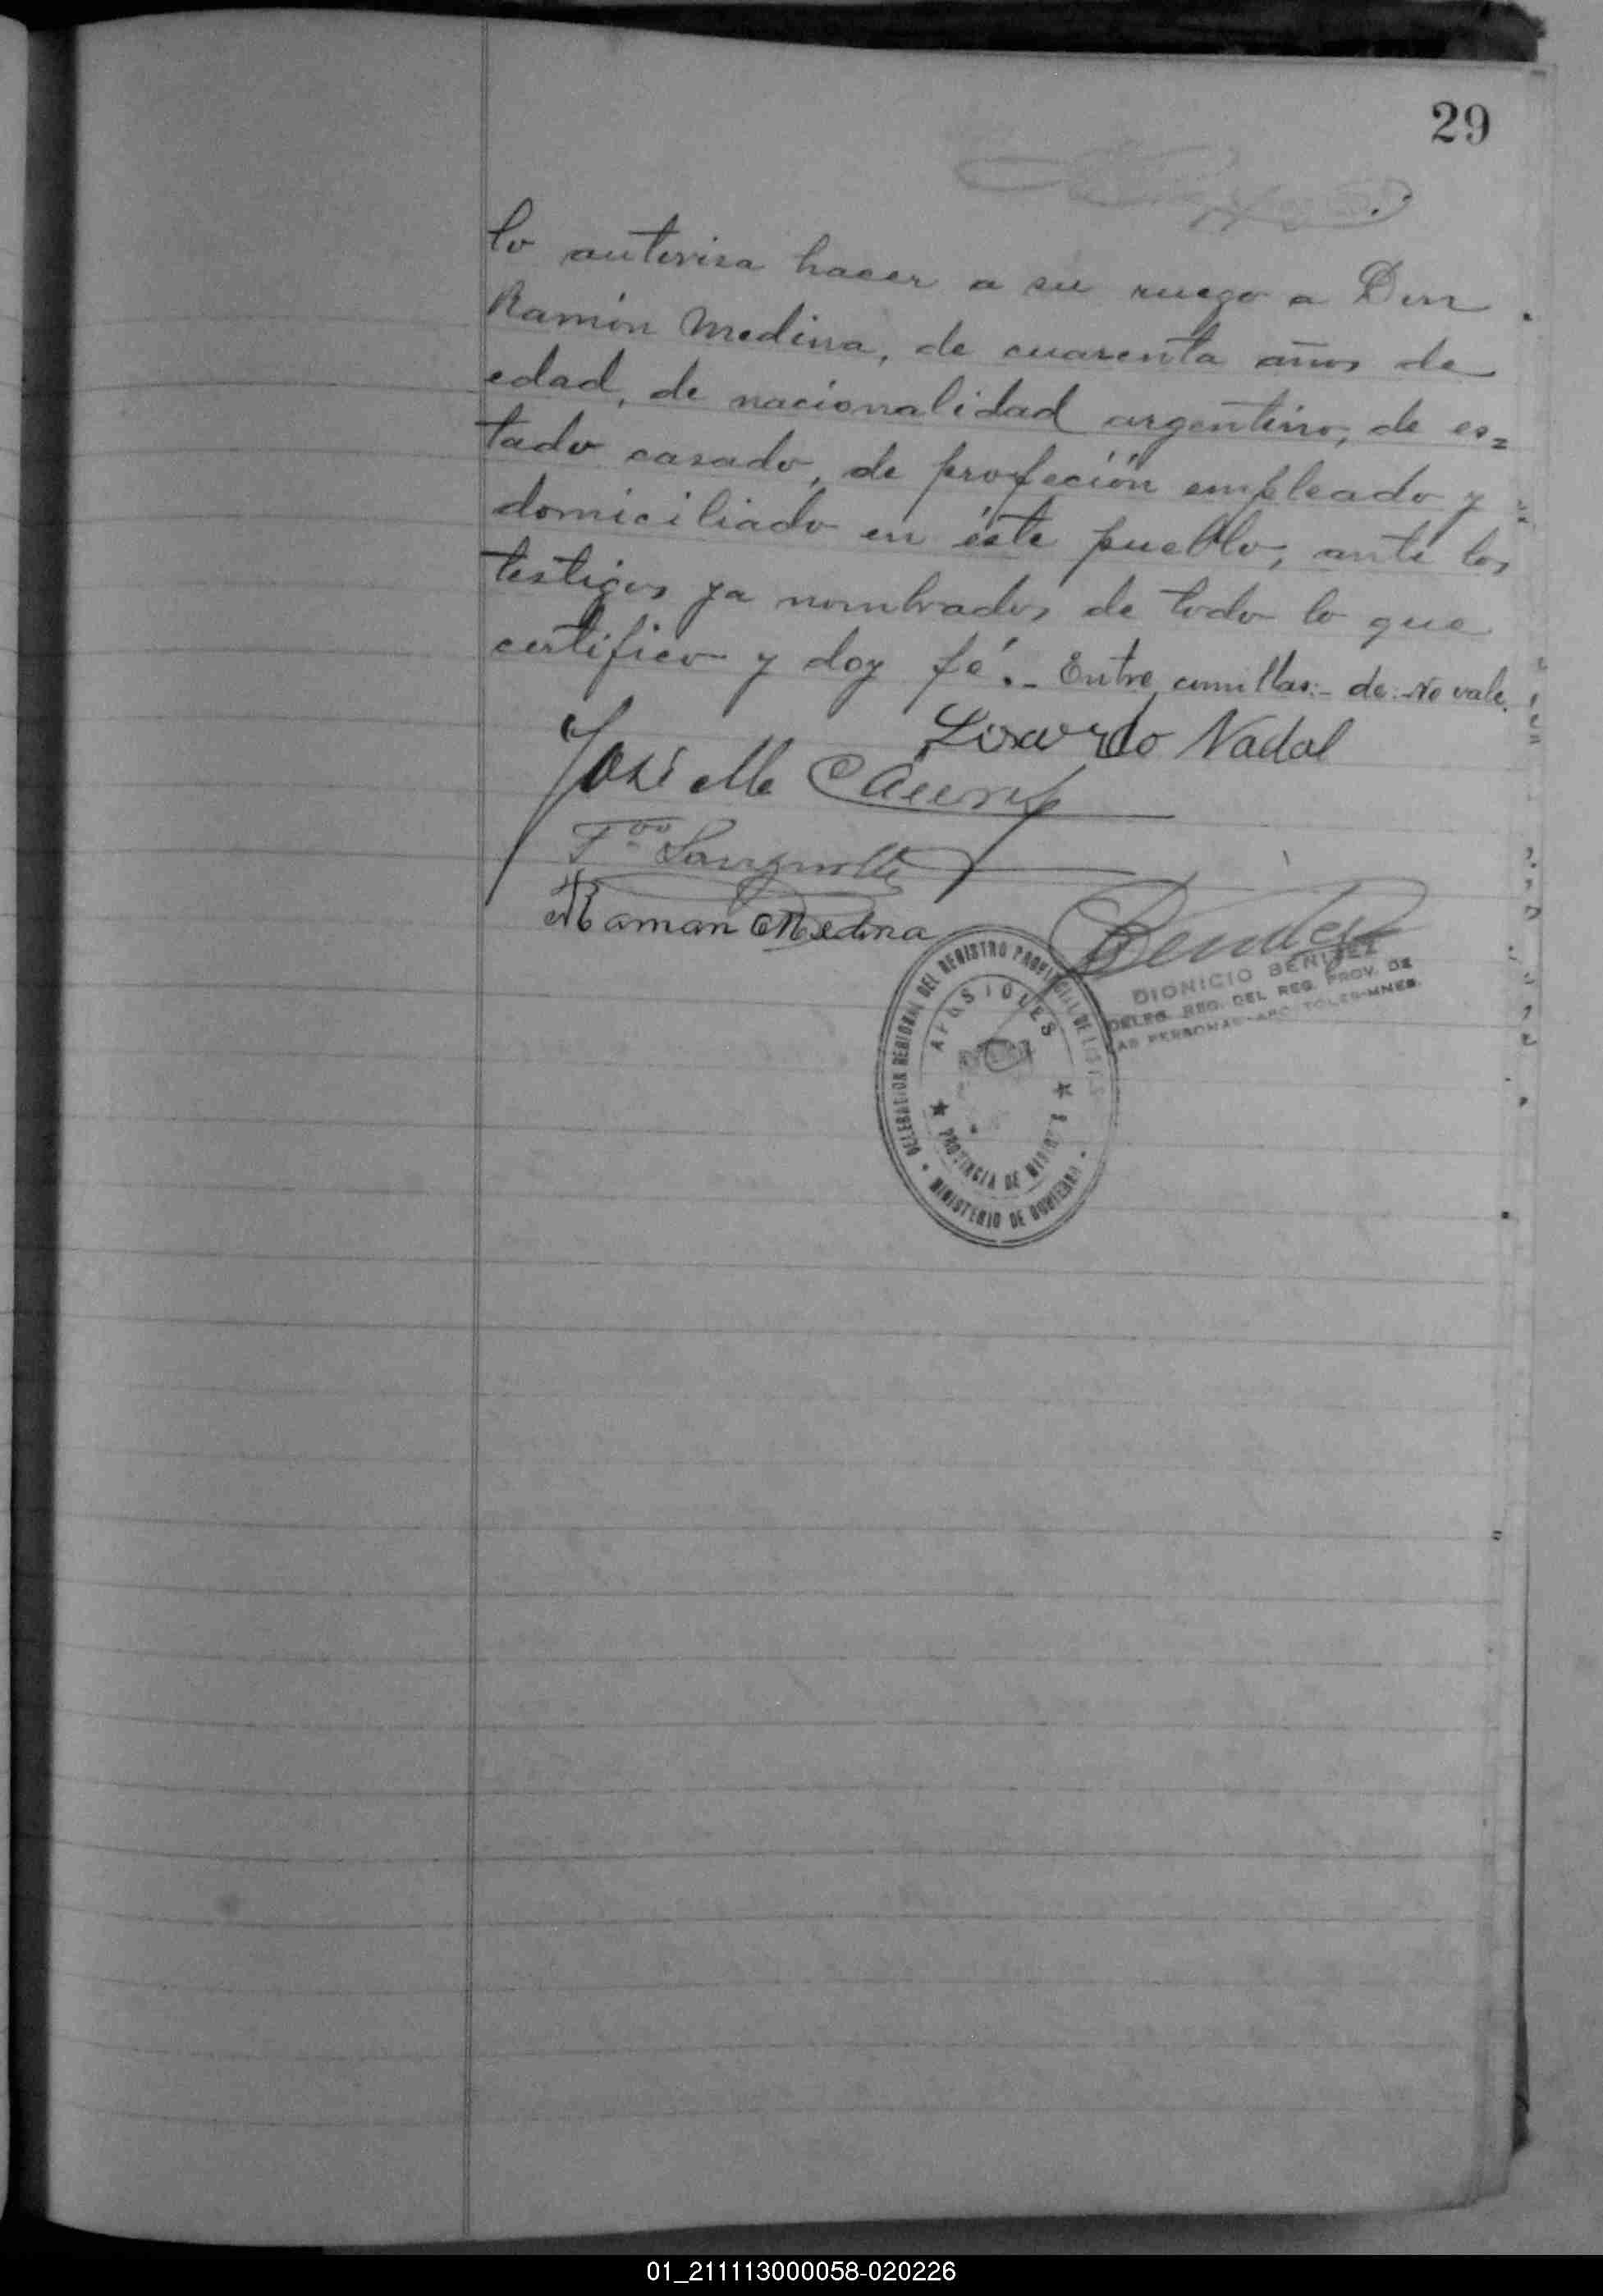 29
lo autoriza hacer a su ruego a Don
Ramón Medina, de cuarenta años de
edad, de nacionalidad argentino, de es=
tado casado, de profeción empleado y
domiciliado en éste pueblo, ante los
testigos ya nombrados de todo lo que
certifico y doy fé.- Entre comillas:- de:- No vale.
Lisardo Nadal
José Ma
Ramon Medina
Benitez
DIONICIO BENITEZ
DELEG. REG. DEL REG. PROV. DE
LAS PERSONAS-APOSTOLES-MNES.
DELEGACION REGIONAL DEL REGISTRO PROVINCIAL DE LAS
APOSTOLES
PROVINCIA DE MISIONES
MINISTERIO DE GOBIERNO
01_211113000058-020226